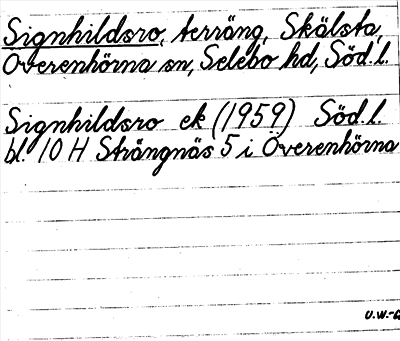 Signhildsro, terräng, Skälsta,
Överenhörna sn, Selebo hd, Söd.l.
Signhildsro ek (1959) Söd.l.
bl. 10 H Strängnäs 5 i Överenhörna
U.W.-G